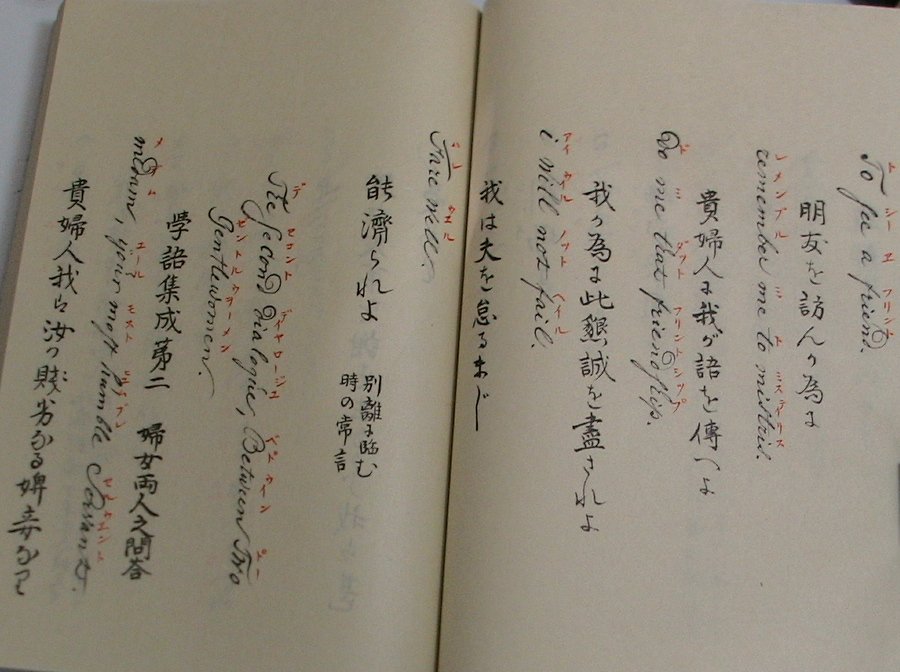 ト シー エ フリンド
To ſee a friend.
明友を訪んか為に
レメンブル ミ ト ミステイリス
remember me to mistris.
貴婦人に我が語を傳へよ
ド ミ ダット フリントシップ
Do me that friendſhip.
我か為に此懇誠を盡されよ
アイ ウイル ノット ヘイル
i will not fail.
我は夫を怠るまじ
ウエル
Fare well
能濟られよ 別離に臨む
時の常言
デ セコント ダイヤロージエ
The Second dialogue, Between Two
ゼントルウヲーメン
Gentlwomen.
學語集成第二 婦女両人之問答
メダム ユール モスト
medam, your moſt humble Servant.
貴婦人我ハ汝の賤劣なる婢妾なり